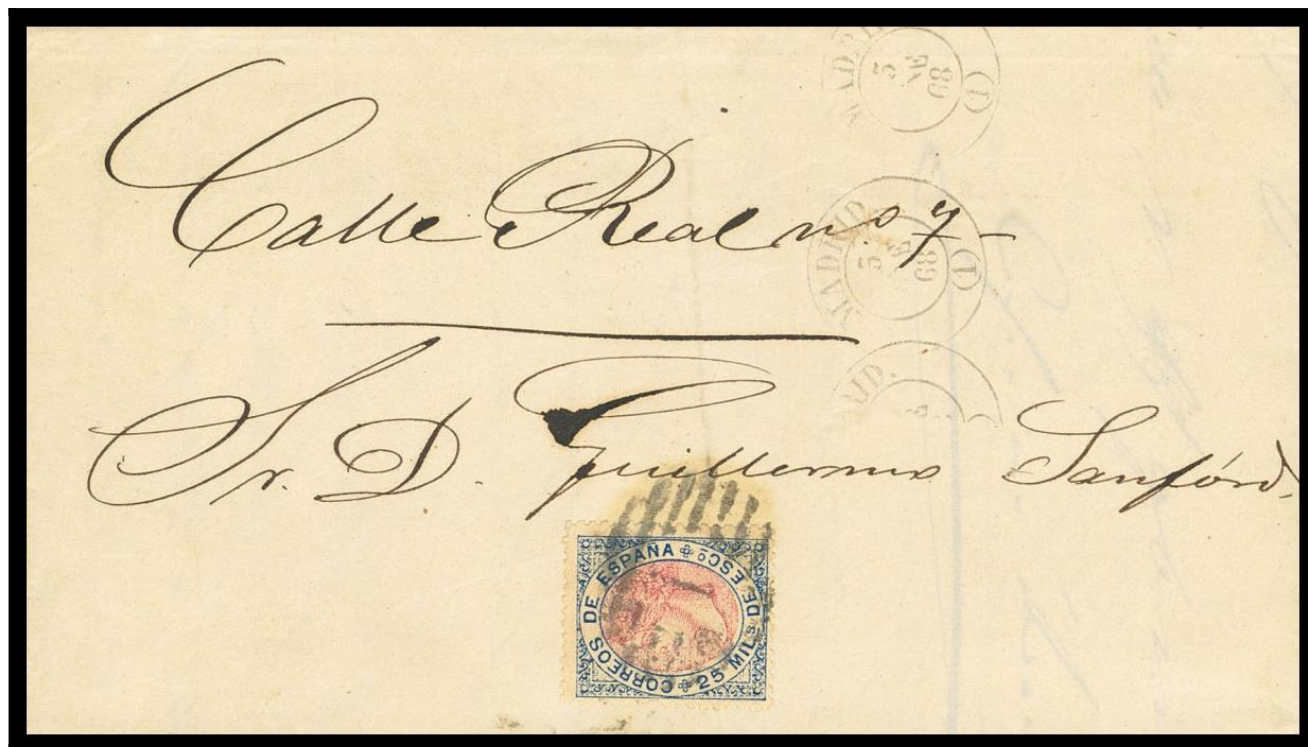 MADRID (1)
5 68
Calle Real nº 7-
MADRID. (1)
5 68
RID.
Sr. D. Guillermo Sanfórd.
CORREOS DE ESPAÑA
25 MILs DE ESCO